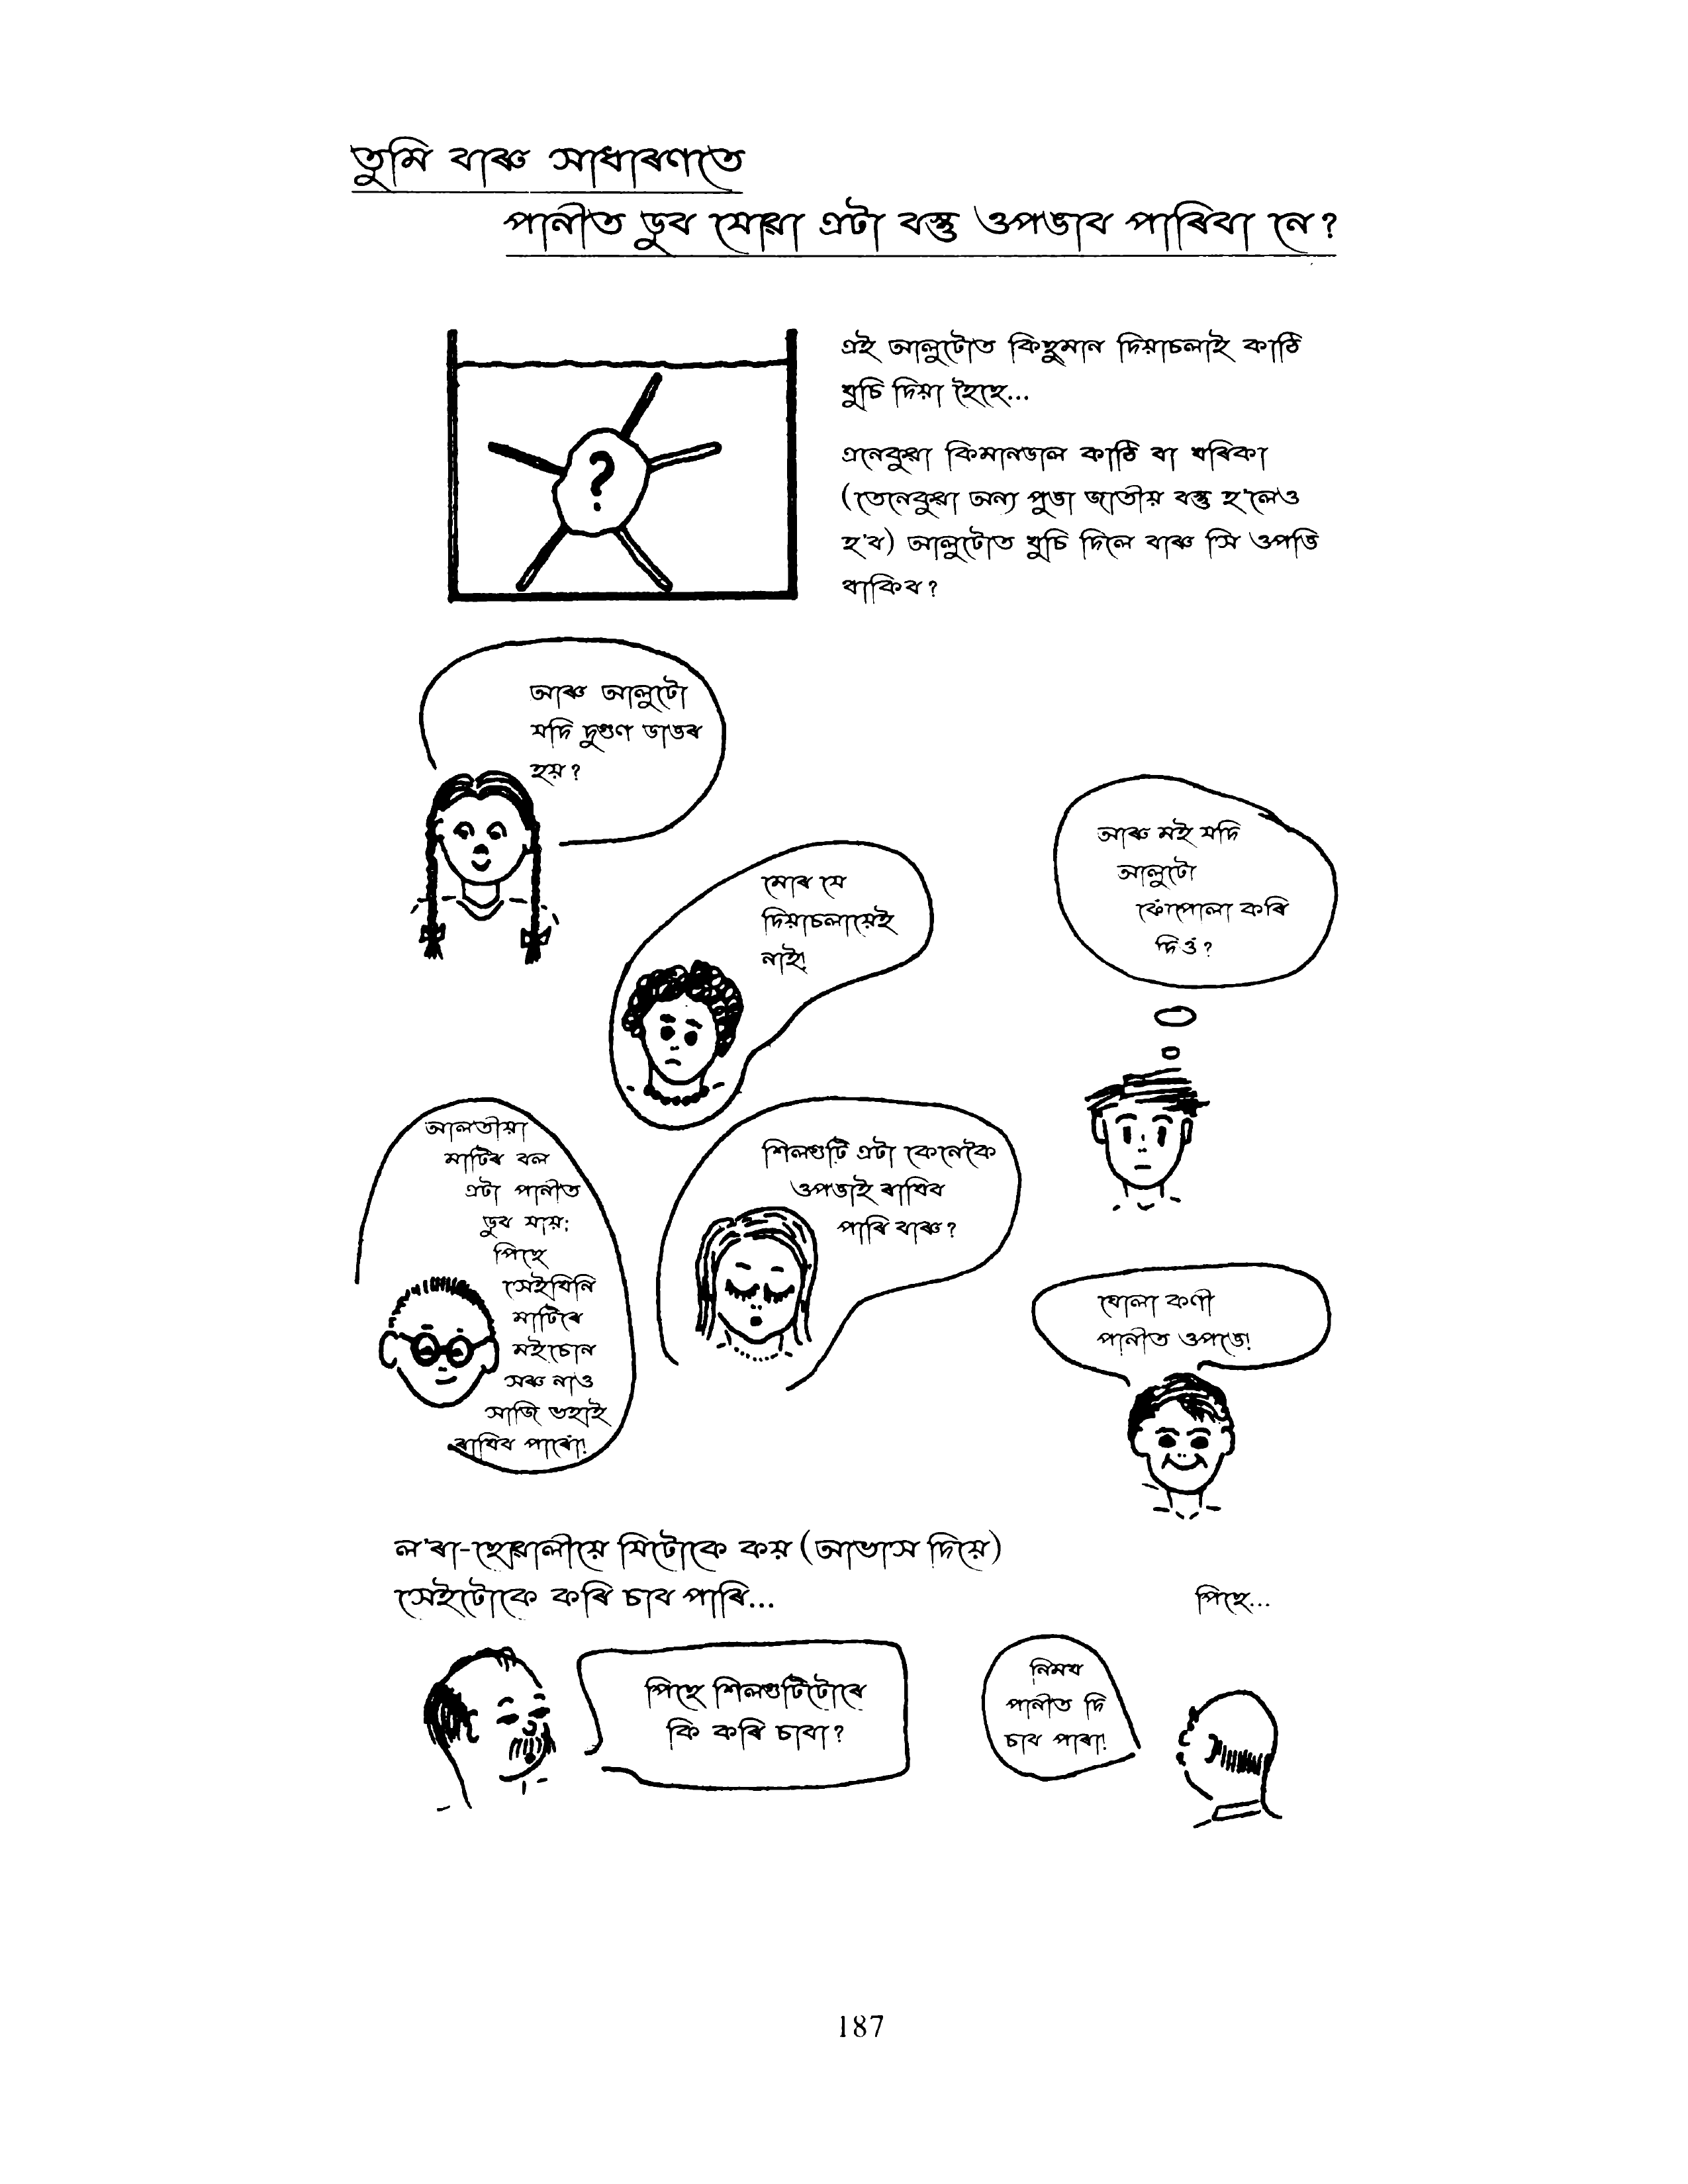 তুমি বাৰু সাধাৰণতে
পানীত ডুব যোৱা এটা বস্তু ওপঙাব পাৰিবা নে?
?
এই আলুটোত কিছুমান দিয়াচলাই কাঠি
খুচি দিয়া হৈছে...
এনেকুৱা কিমানডাল কাঠি বা খৰিকা
(তেনেকুৱা অন্য পুঙা জাতীয় বস্তু হ'লেও
হ'ব) আলুটোত খুচি দিলে বাৰু সি ওপঙি
থাকিব?
আৰু আলুটো
যদি দুগুণ ডাঙৰ
হয়?
মোৰ যে
দিয়াচলায়েই
নাই!
আৰু মই যদি
আলুটো
ফোঁপোলা কৰি
দিওঁ?
আলতীয়া
মাটিৰ বল
এটা পানীত
ডুব যায়;
পিছে
সেইখিনি
মাটিৰে
মইচোন
সৰু নাও
সাজি ভহাই
ৰাখিব পাৰোঁ!
শিলগুটি এটা কেনেকৈ
ওপঙাই ৰাখিব
পাৰি বাৰু?
ঘোলা কণী
পানীত ওপঙে!
ল'ৰা-ছোৱালীয়ে যিটোকে কয় (আভাস দিয়ে)
সেইটোকে কৰি চাব পাৰি...
পিছে...
পিছে শিলগুটিটোৰে
কি কৰি চাবা?
নিমখ
পানীত দি
চাব পাৰা!
187